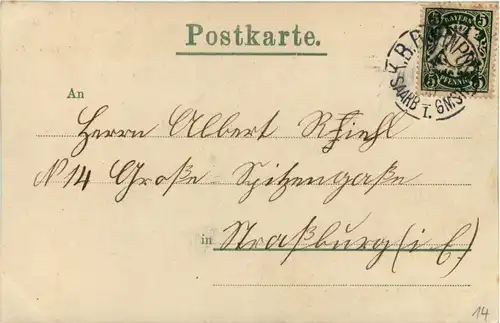 Postkarte.
BAYERN
5 5
PFENNIG
K.B.
SAARB
I. GMS
An
Herrn Albert Riehl
N 14 Große-Spitzengaße
in Straßburg (i E.)
14